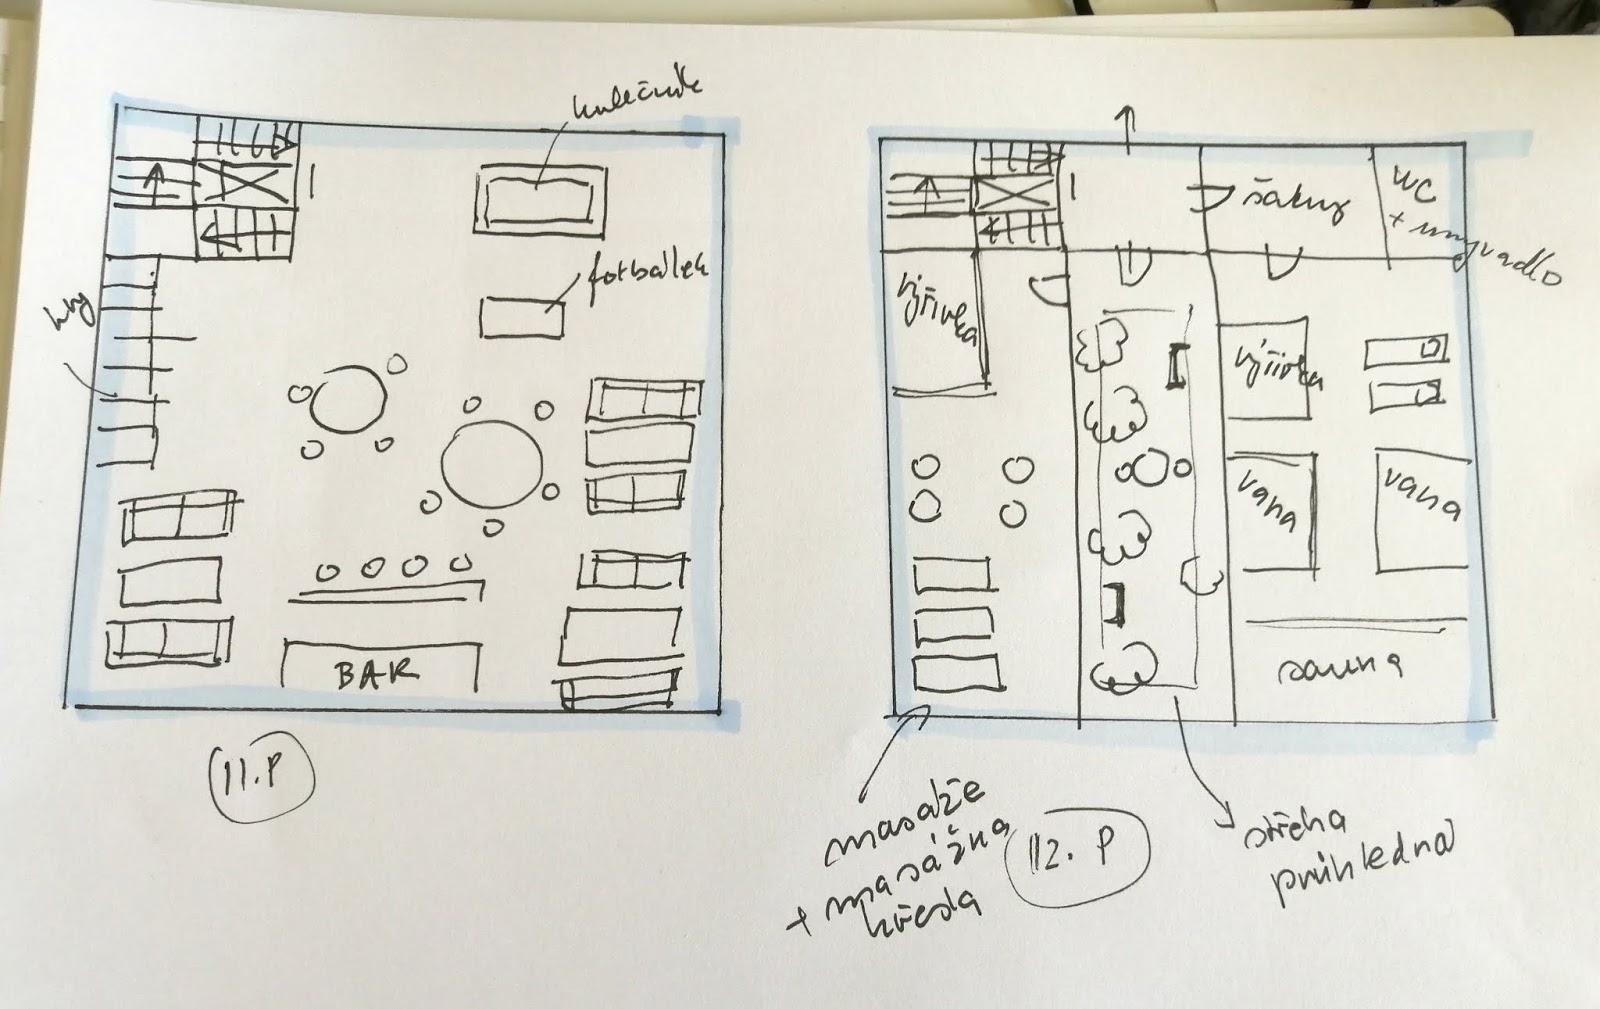 kulečník
fotbálek
hry
BAR
11.P
šatny
WC
+ umyvadlo
výřivka
výřivka
vana
vana
sauna
masáže
+ masážna
křesla
12. P
střecha
průhledná